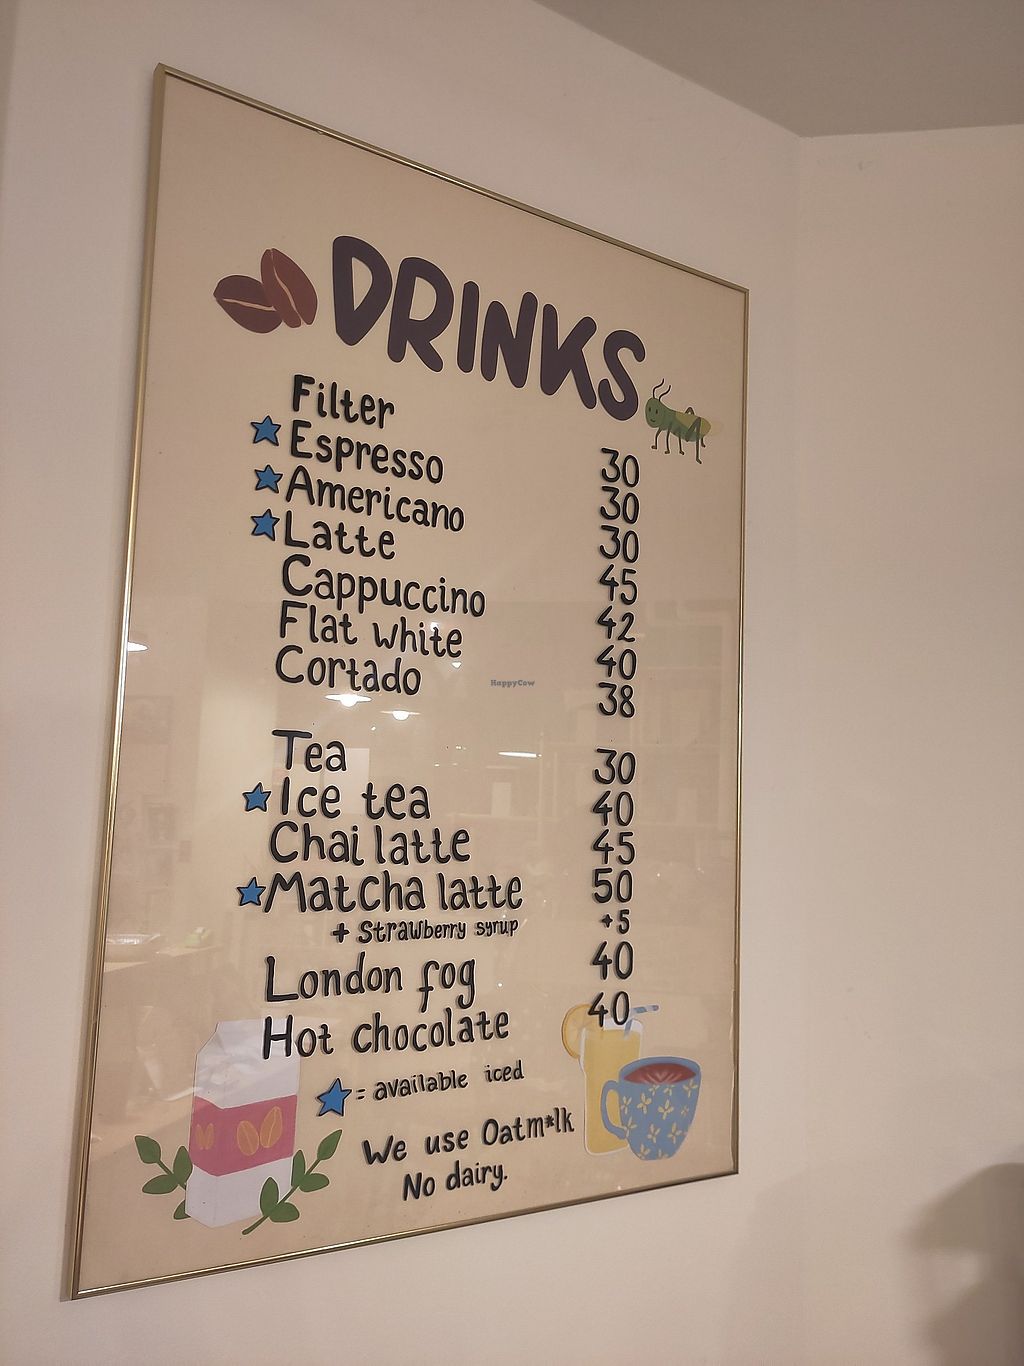 DRINKS
Filter 30
Espresso 30
Americano 30
Latte 45
Cappuccino 42
Flat white 40
Cortado 38
Tea 30
Ice tea 40
Chai latte 45
Matcha latte 50
+ Strawberry syrup +5
London fog 40
Hot chocolate 40
= available iced
We use Oatm*lk
No dairy.
HappyCow